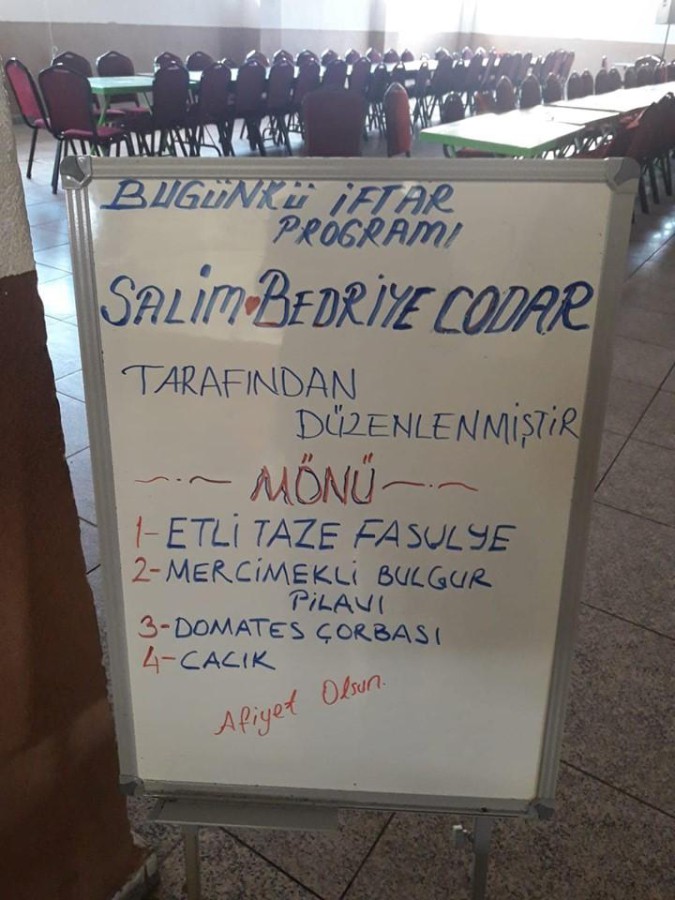 BUGÜNKÜ İFTAR
PROGRAMI
SALİM BEDRİYE CODAR
TARAFINDAN
DÜZENLENMİŞTİR
MÖNÜ
1-ETLİ TAZE FASULYE
2-MERCİMEKLİ BULGUR
PİLAVI
3-DOMATES ÇORBASI
4-CACIK
Afiyet Olsun.